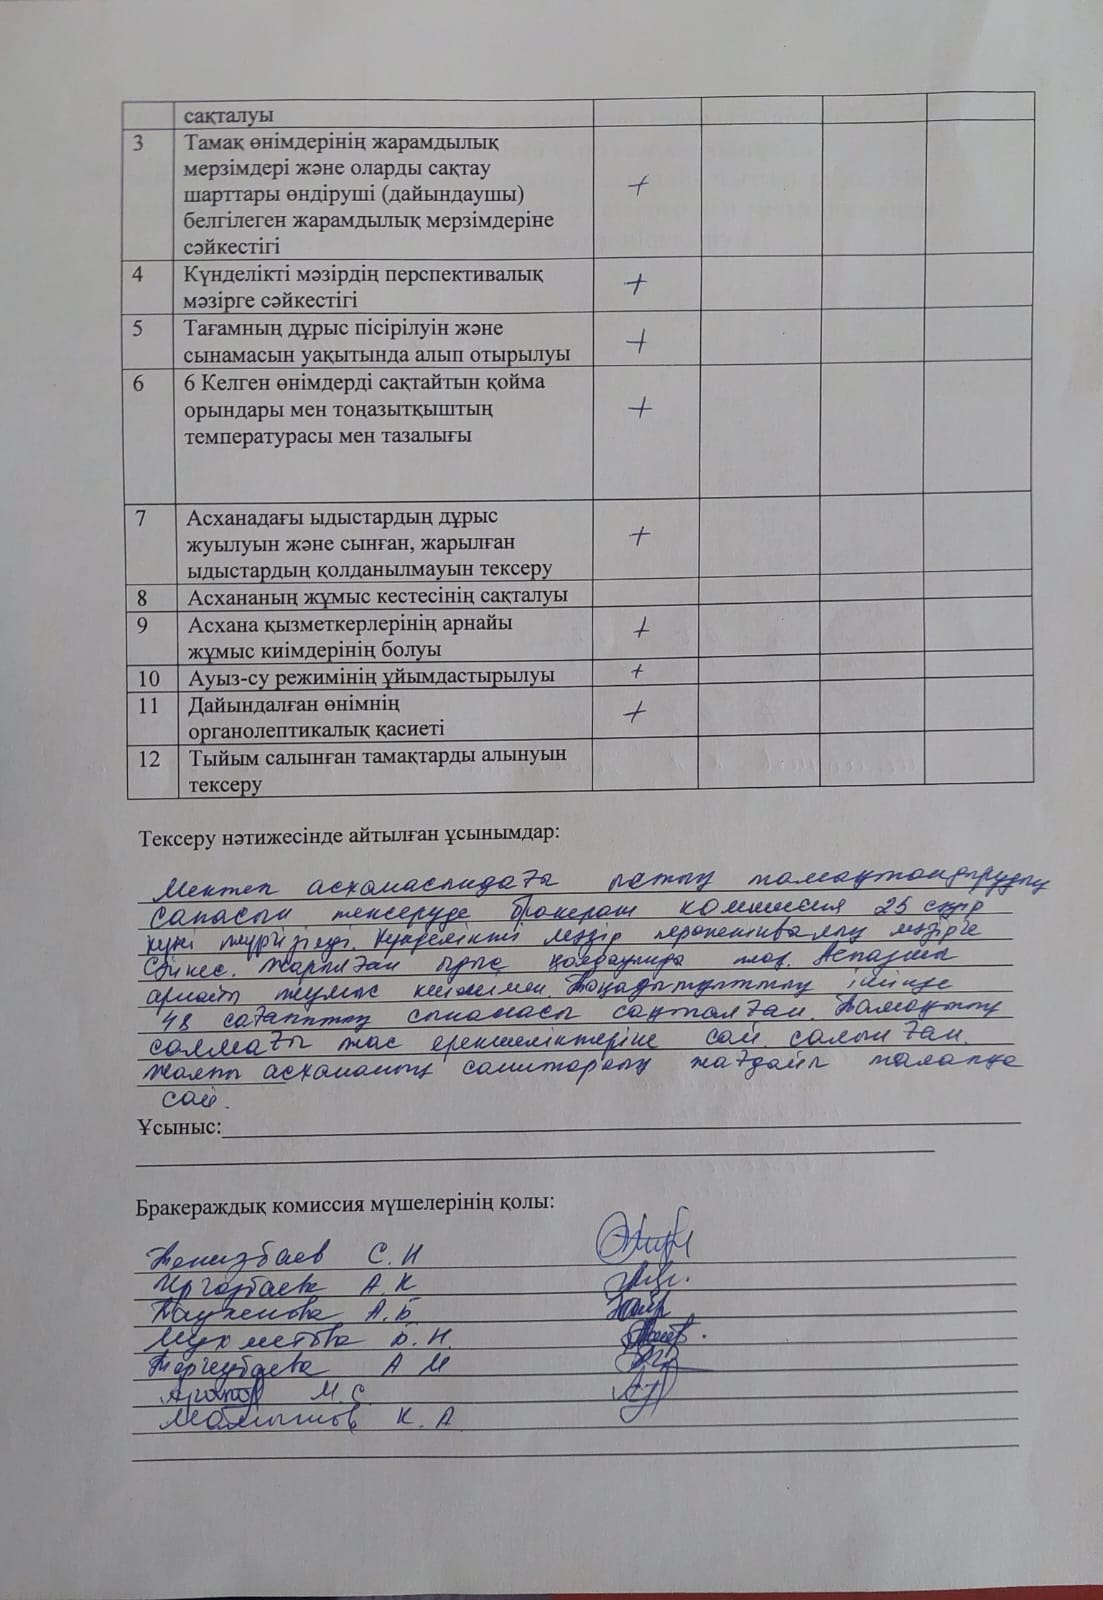 сақталуы
3 Тамақ өнімдерінің жарамдылық
мерзімдері және оларды сақтау
шарттары өндіруші (дайындаушы)
белгілеген жарамдылық мерзімдеріне
сәйкестігі
+
4 Күнделікті мәзірдің перспективалық
мәзірге сәйкестігі
+
5 Тағамның дұрыс пісірілуін және
сынамасын уақытында алып отырылуы
+
6 6 Келген өнімдерді сақтайтын қойма
орындары мен тоңазытқыштың
температурасы мен тазалығы
+
7 Асханадағы ыдыстардың дұрыс
жуылуын және сынған, жарылған
ыдыстардың қолданылмауын тексеру
+
8 Асхананың жұмыс кестесінің сақталуы
9 Асхана қызметкерлерінің арнайы
жұмыс киімдерінің болуы
+
10 Ауыз-су режимінің ұйымдастырылуы +
11 Дайындалған өнімнің
органолептикалық қасиеті
+
12 Тыйым салынған тамақтарды алынуын
тексеру
Тексеру нәтижесінде айтылған ұсынымдар:
Мектеп асханасындағы ыстық тамақтандырудың
сапасын тексеруде бракераж комиссия 25 сәуір
күні жүргізілді. Күнделікті мәзір перспективалық мәзірге
сәйкес. Жарылған ыдыс қолдануында жоқ. Аспазшы
арнайы жұмыс киімімен. ішінде
48 сағаттық сынамасы сақталған. Тамақтың
салмағы жас ерекшеліктеріне сай салынған.
Жалпы асхананың санитарлық жағдайы талапқа
сай.
Ұсыныс:
Бракераждық комиссия мүшелерінің қолы:
Тенизбаев С. Н
А. К
А. Б.
Мухметова Б. Н.
А М
М. С.
К. А